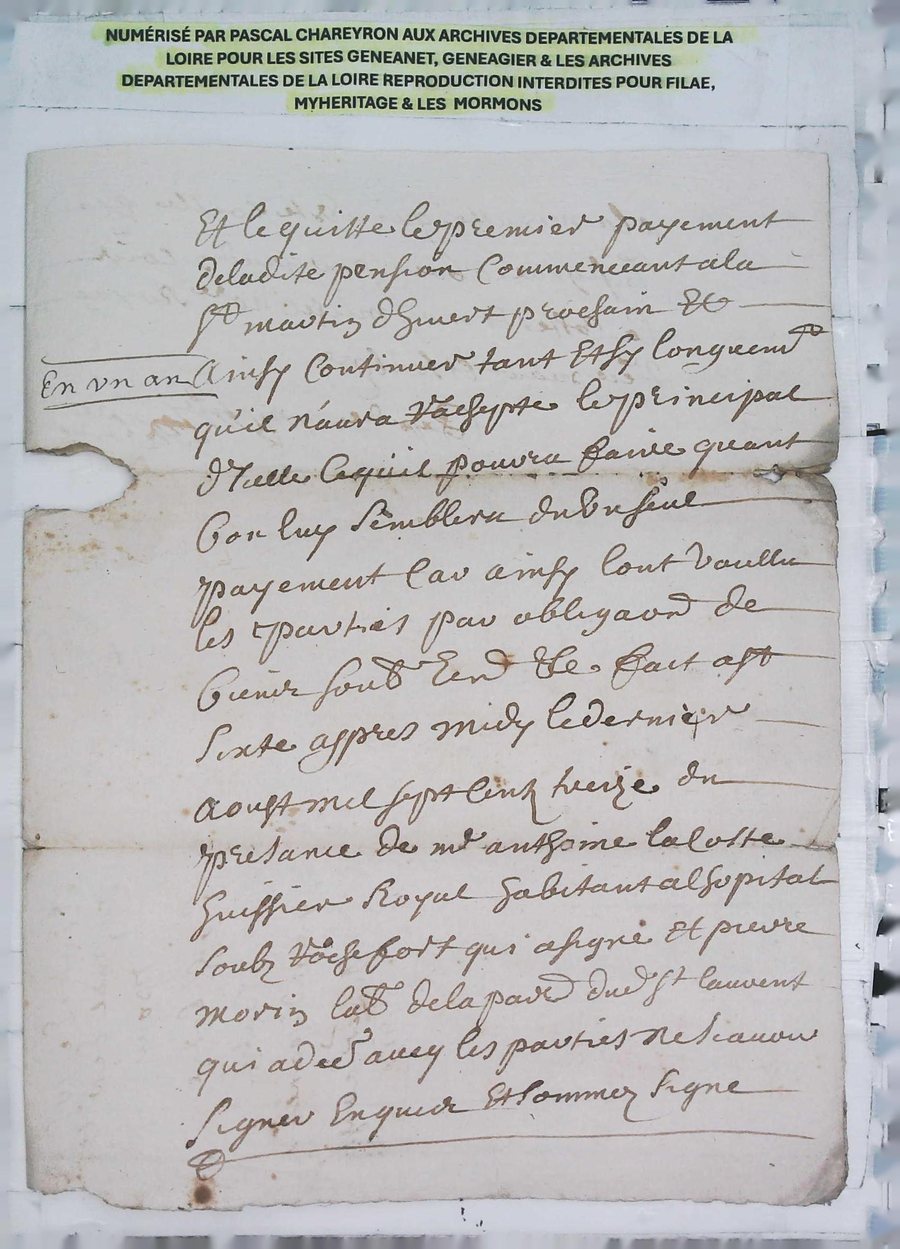 NUMÉRISÉ PAR PASCAL CHAREYRON AUX ARCHIVES DEPARTEMENTALES DE LA
LOIRE POUR LES SITES GENEANET, GENEAGIER & LES ARCHIVES
DEPARTEMENTALES DE LA LOIRE REPRODUCTION INTERDITES POUR FILAE,
MYHERITAGE & LES MORMONS
Et le quitte le premier payement
de ladite pension Commenceant a la
st martin dhivert prochain Et
En un an
Ainsy Continuer tant Et sy longuemt
quil naura rachepte le principal
dIcelle ce quil pouvra faire quant
bon luy semblera En Un seul
payement Car ainsy lont voullu
les parties par obligaon de
biens soubs fait a st
sixte appres midy le dernier
aoust mil sept Centz treize En
presance de me anthoine lacotte
huissier Royal habitant a lhopital
soubz Rochefort qui a signe Et pierre
morin lab de la par dud st laurent
qui a avecq les parties ne scavoir
signer Enquis Et sommez signe